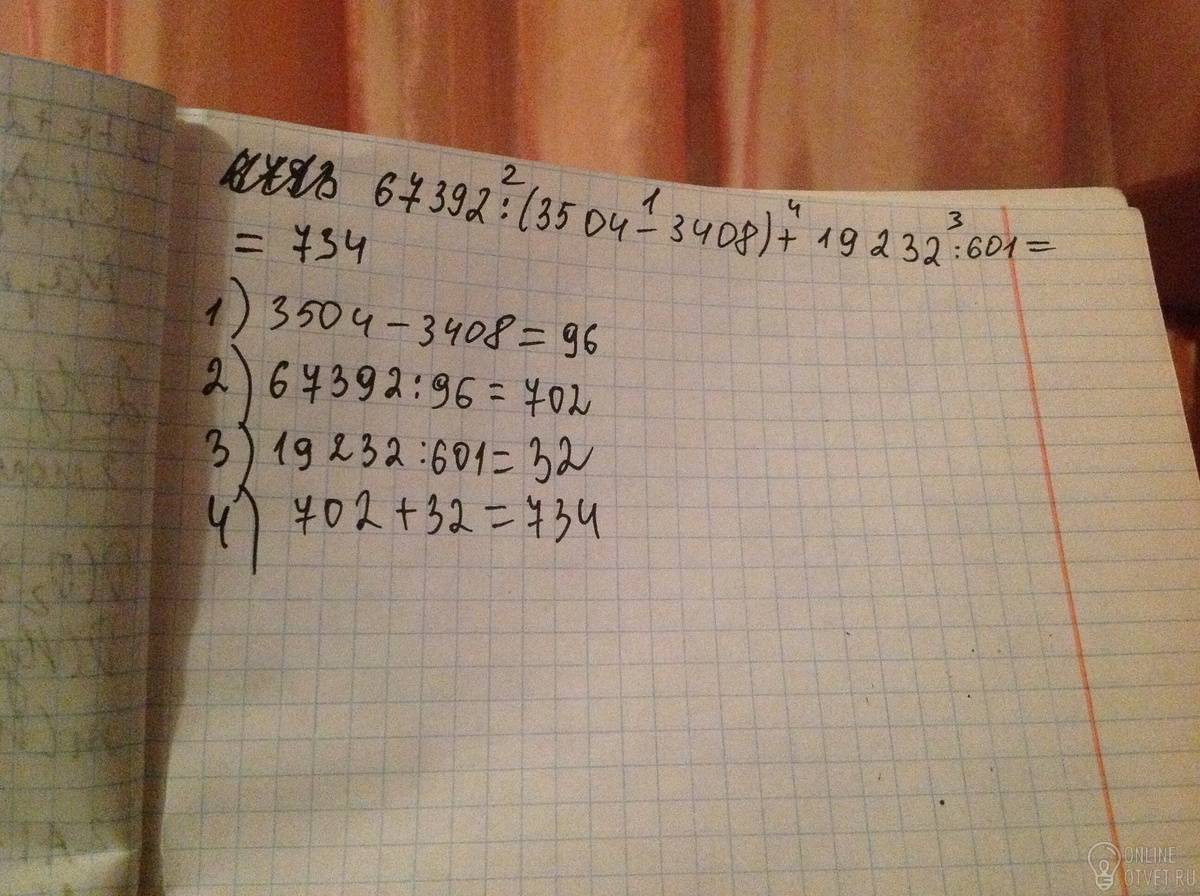 67392:(3504-3408)+19232:601=
2 1 4 3
= 734
1) 3504-3408=96
2) 67392:96=702
3) 19232:601=32
4) 702+32=734
ONLINE
OTVET.RU